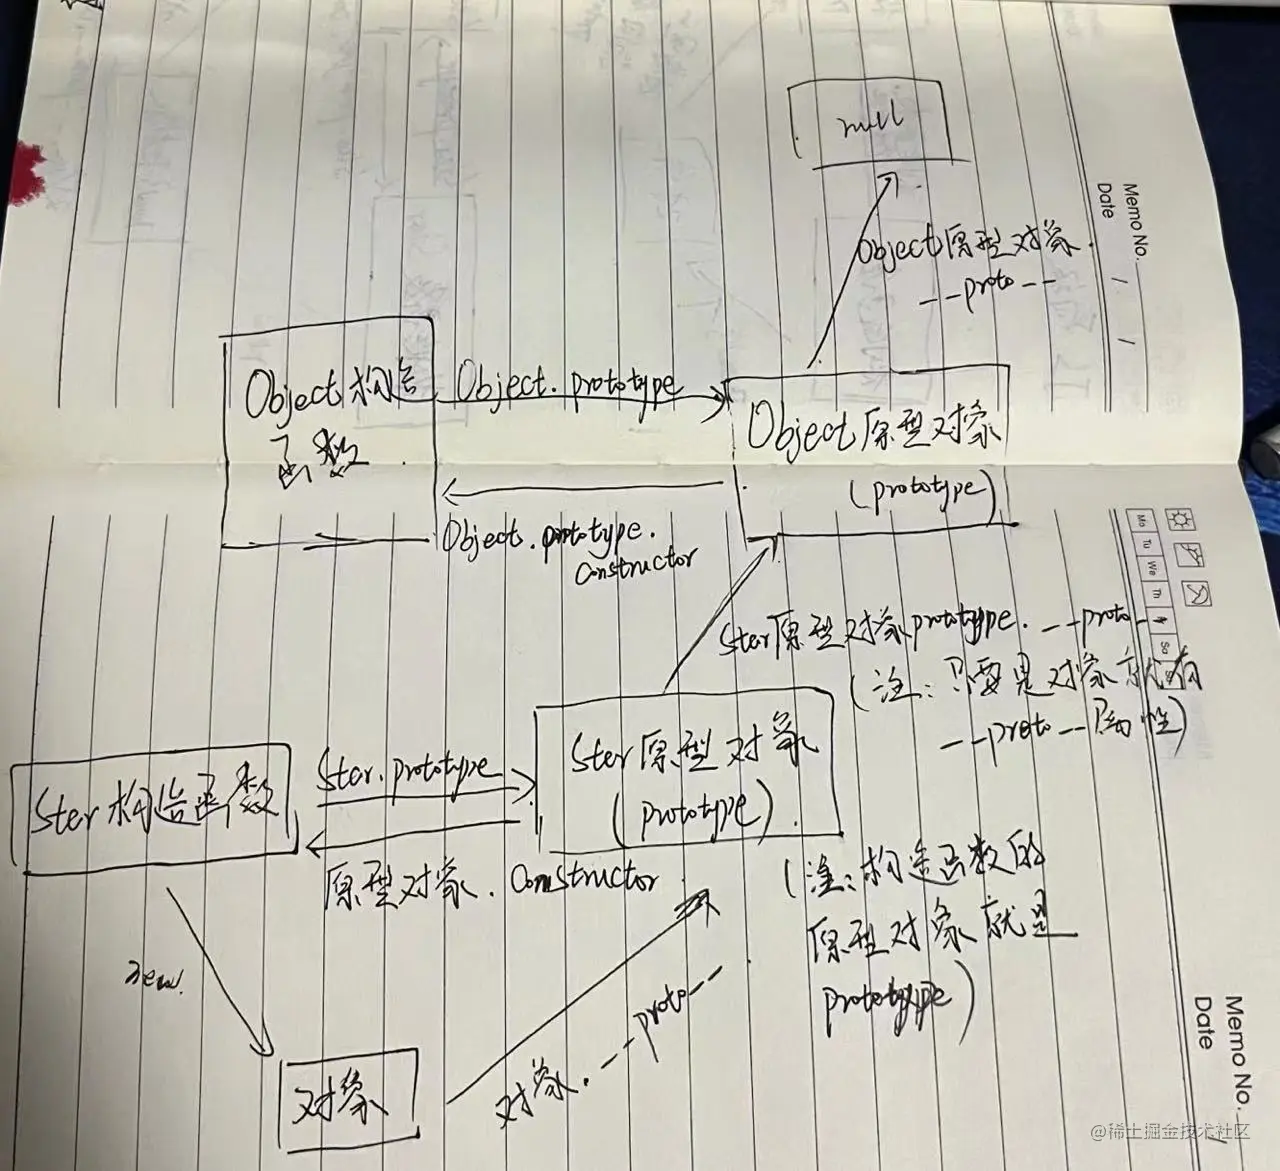 null
Memo No.
Date
/ /
Object原型对象.
--proto--
Object构造
函数
Object.prototype
Object原型对象
(prototype)
Object.prototype.
constructor
Mo
Tu
We
Th
Sa
Ster原型对象prototype.--proto--
(注:只要是对象就有
--proto--属性)
Ster构造函数
Ster.prototype
Ster原型对象
(prototype).
原型对象.constructor
(注:构造函数的
原型对象就是
prototype)
new.
对象
对象.--proto--
Memo No.
Date
/
@稀土掘金技术社区